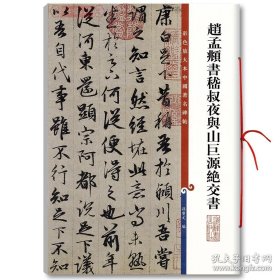 趙孟頫書嵇叔夜與山巨源絕交書
彩色放大本中國著名碑帖
孫寶文 編
康白足下昔稱吾於潁川吾嘗
謂之知言然經怪此意尚
於足下何從便得之也前年
從河東還顯宗阿都說足下
吾自代事雖不行知足下